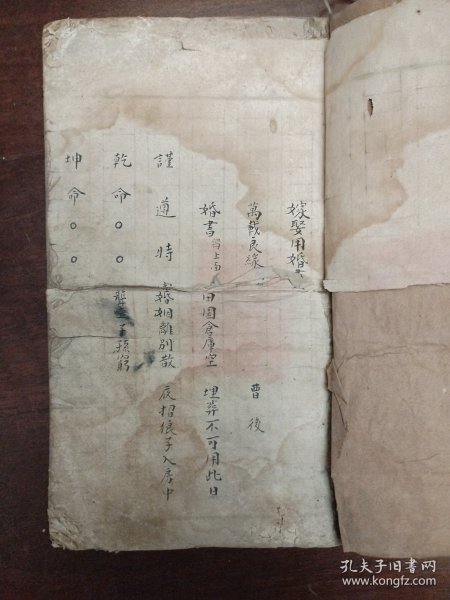 嫁娶用婚
萬載良緣 曹後
婚書 田園倉庫空 埋葬不可用此日
謹遵時 婚姻離別散 招狼子入房中
乾命〇〇 孫窮
坤命〇〇
孔夫子旧书网
www.kongfz.com